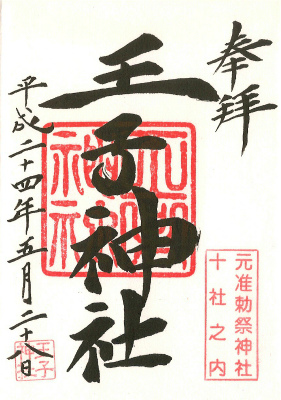 奉拝
元准勅祭神社
十社之内
王子神社
王子神社
平成二十四年五月二十八日
王子
神社